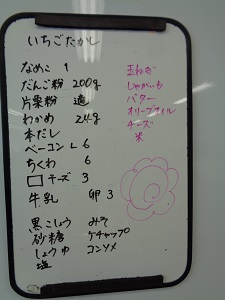 いちごたかし
なめこ 1
だんご粉 200g
片栗粉 適
わかめ 24g
本だし
ベーコンL 6
ちくわ 6
□チーズ 3
牛乳 卵 3
黒こしょう みそ
砂糖 ケチャップ
しょうゆ コンソメ
塩
玉ねぎ
じゃがいも
バター
オリーブオイル
チーズ
米